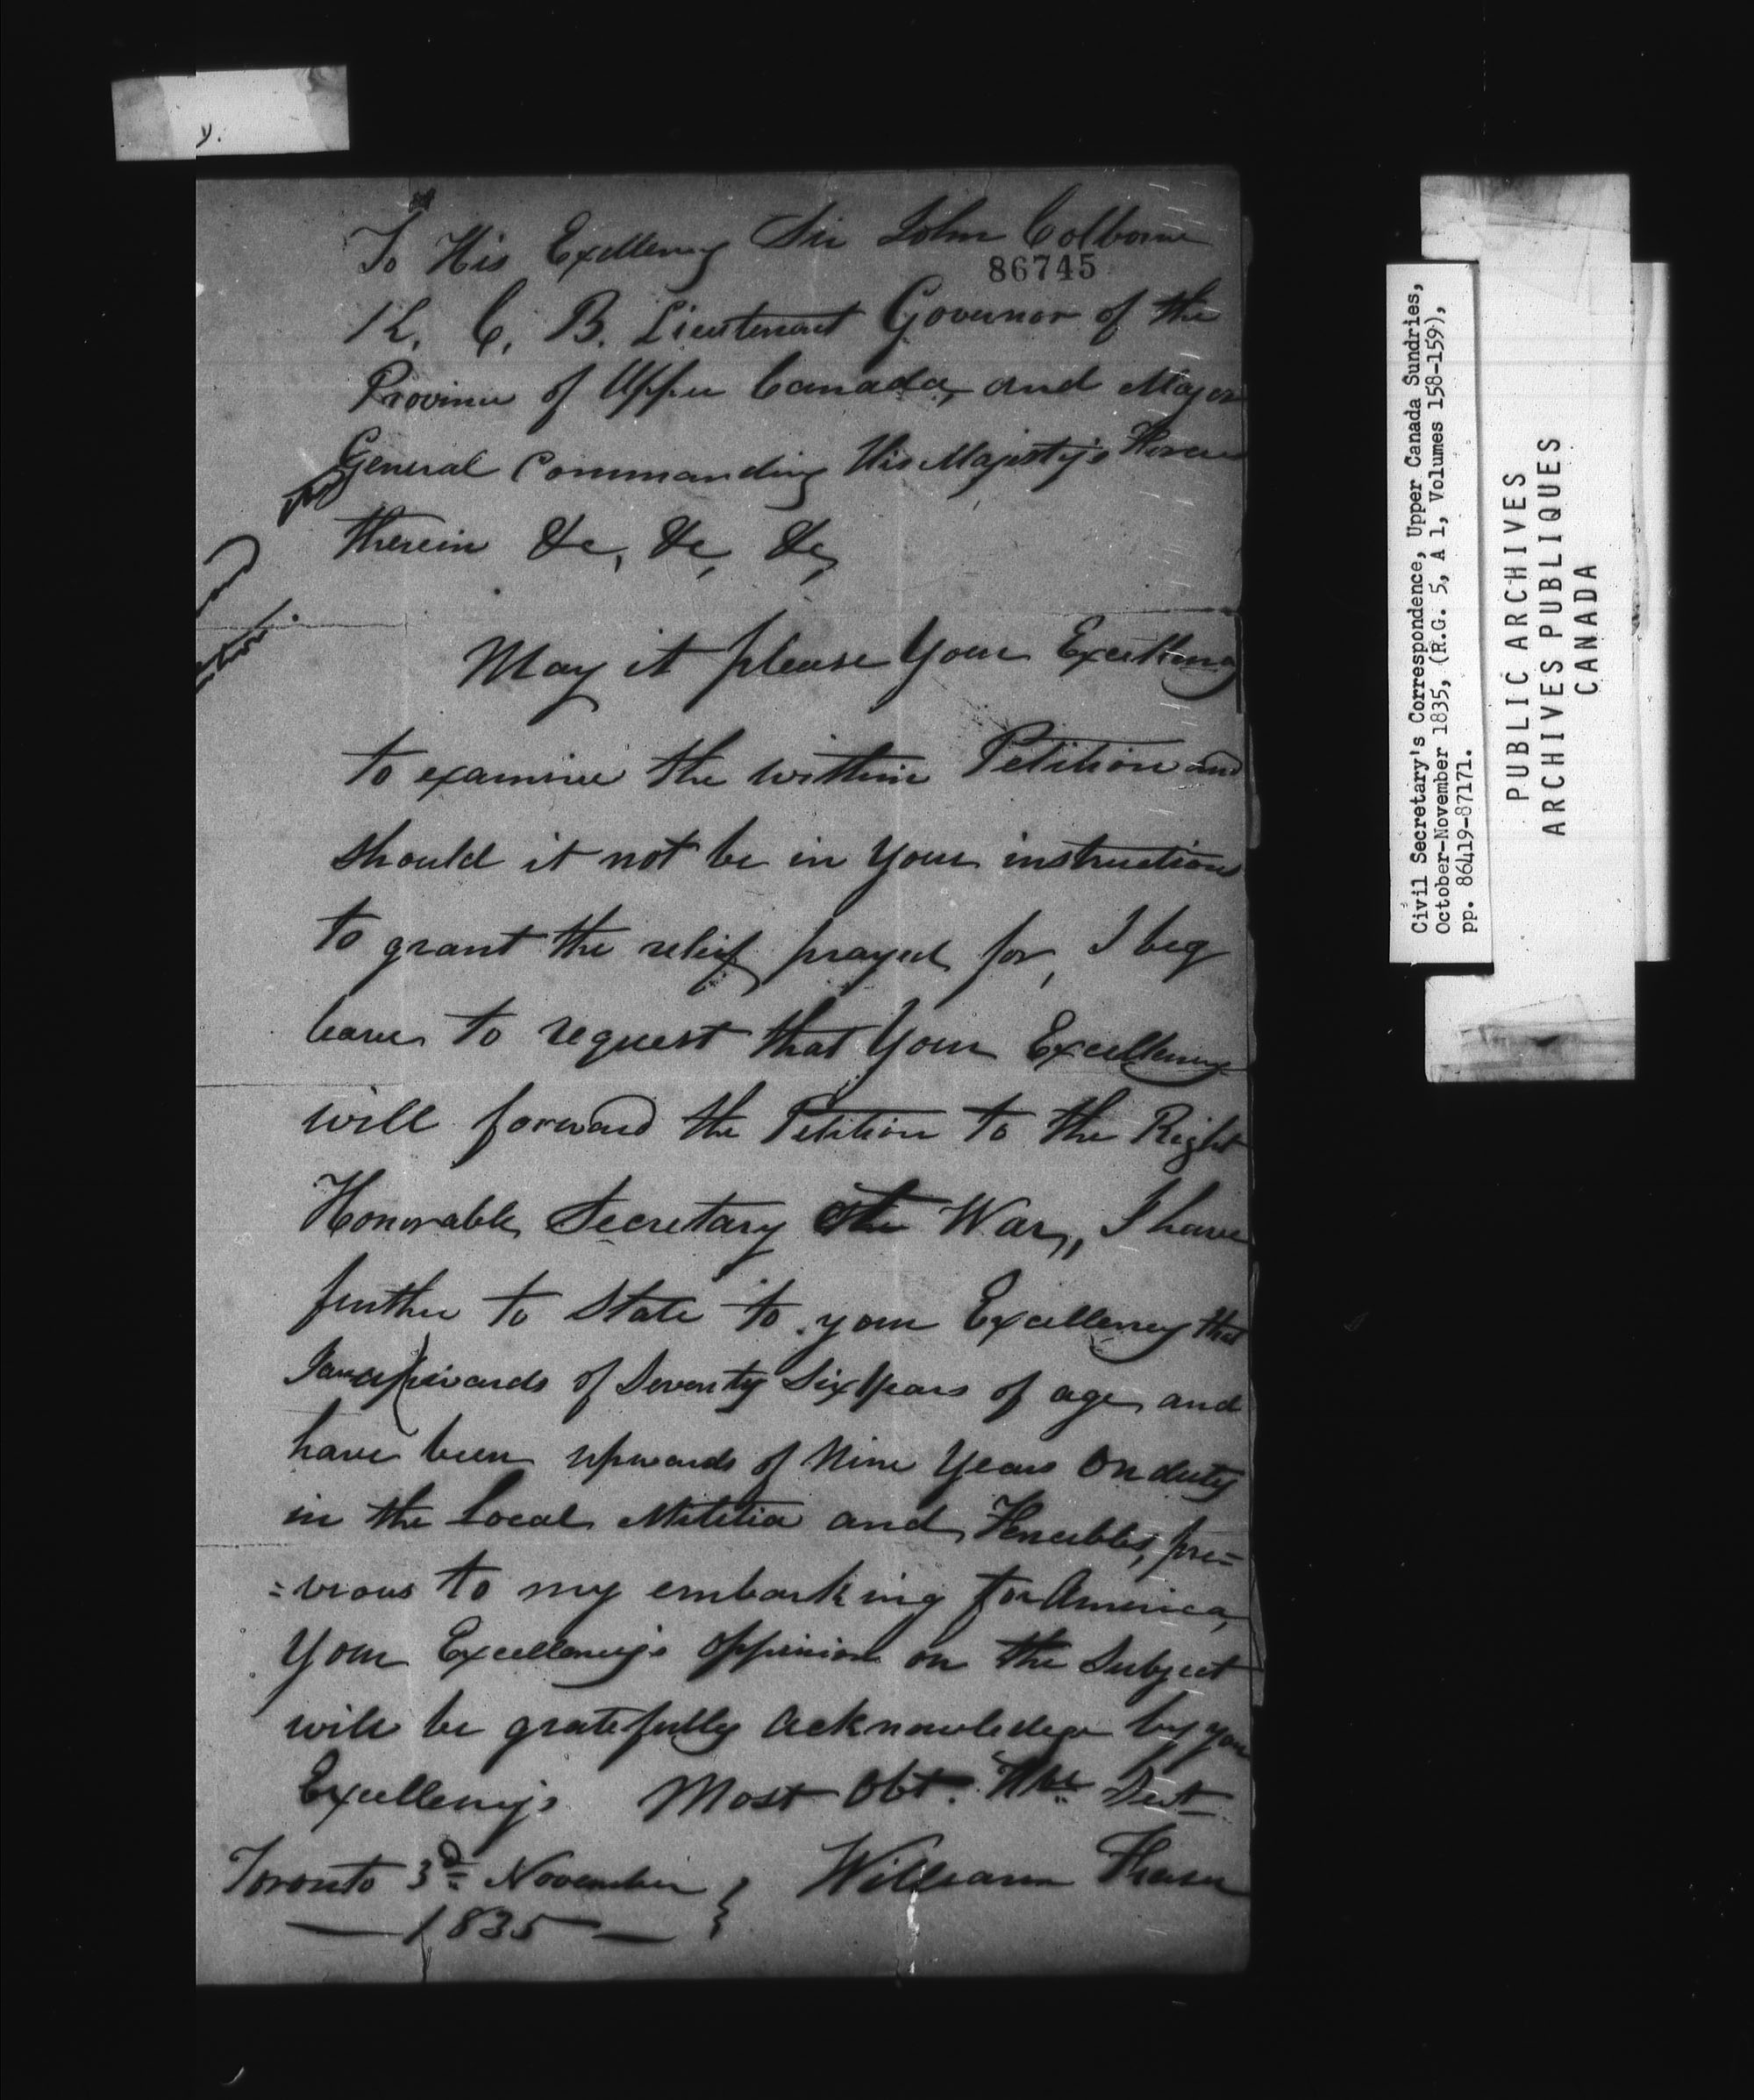 To His Excellency Sir John Colborne
86745
K. C. B. Lieutenant Governor of the
Province of Upper Canada, and Major
General Commanding His Majesty's Forces
therein &c, &c, &c,
May it please Your Excellency
to examine the within Petition and
should it not be in Your instructions
to grant the relief prayed for, I beg
leave to request that Your Excellency
will forward the Petition to the Right
Honorable Secretary War, I have
further to State to your Excellency that
I am upwards of Seventy Six Years of age and
have been upwards of Nine Years on duty
in the Local Militia and Fencibles, pre=
=vious to my embarking for America,
Your Excellency's Oppinion on the Subject
will be gratefully acknowledge by your
Excellency's Most Obt. Hble Sert
Toronto 3d November } William Fraser
— 1835 —
Civil Secretary's Correspondence, Upper Canada Sundries,
October-November 1835, (R.G. 5, A 1, Volumes 158-159),
pp. 86419-87171.
PUBLIC ARCHIVES
ARCHIVES PUBLIQUES
CANADA